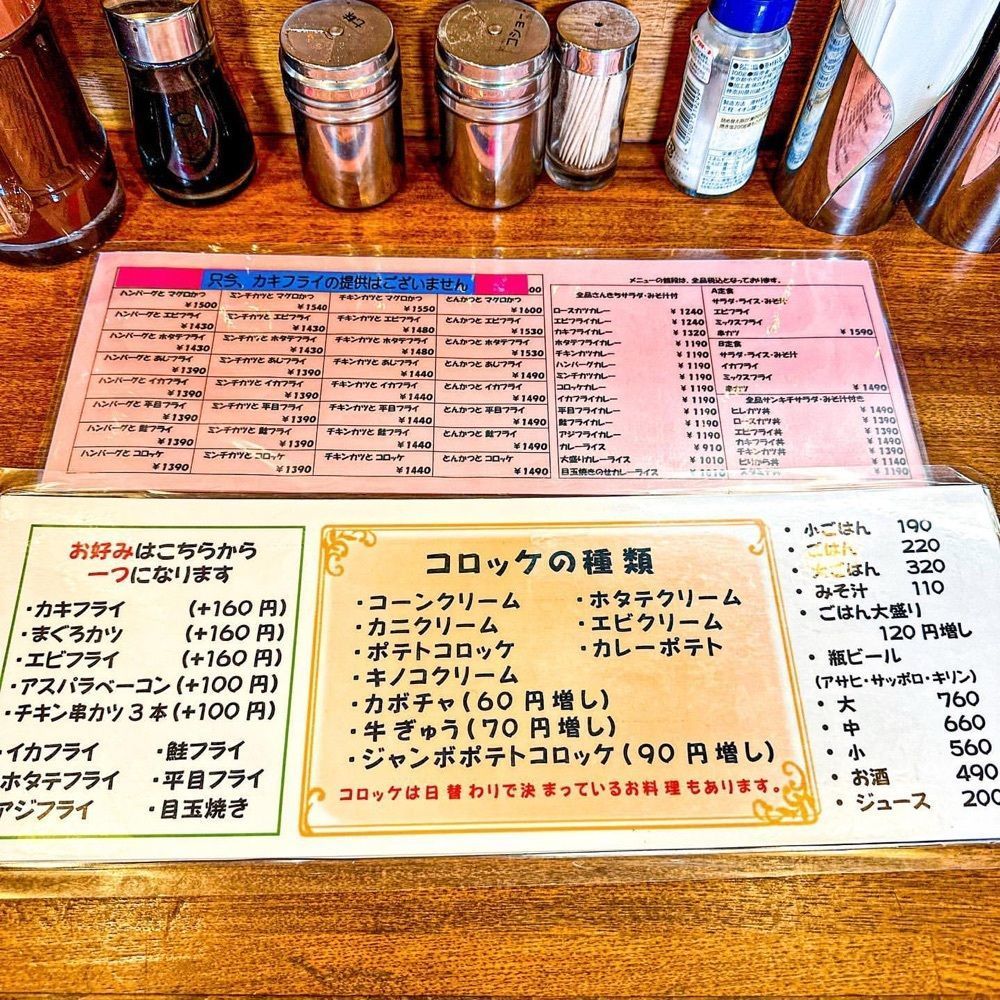 只今、カキフライの提供はございません
ハンバーグと マグロかつ ¥1500 ミンチカツと マグロかつ ¥1540 チキンカツと マグロかつ ¥1550 とんかつと マグロかつ ¥1600
ハンバーグと エビフライ ¥1430 ミンチカツと エビフライ ¥1430 チキンカツと エビフライ ¥1480 とんかつと エビフライ ¥1530
ハンバーグと ホタテフライ ¥1430 ミンチカツと ホタテフライ ¥1430 チキンカツと ホタテフライ ¥1480 とんかつと ホタテフライ ¥1530
ハンバーグと あじフライ ¥1390 ミンチカツと あじフライ ¥1390 チキンカツと あじフライ ¥1440 とんかつと あじフライ ¥1490
ハンバーグと イカフライ ¥1390 ミンチカツと イカフライ ¥1390 チキンカツと イカフライ ¥1440 とんかつと イカフライ ¥1490
ハンバーグと 平目フライ ¥1390 ミンチカツと 平目フライ ¥1390 チキンカツと 平目フライ ¥1440 とんかつと 平目フライ ¥1490
ハンバーグと 鮭フライ ¥1390 ミンチカツと 鮭フライ ¥1390 チキンカツと 鮭フライ ¥1440 とんかつと 鮭フライ ¥1490
ハンバーグと コロッケ ¥1390 ミンチカツと コロッケ ¥1390 チキンカツと コロッケ ¥1440 とんかつと コロッケ ¥1490
メニューの値段は、全品税込となっております。
全品さんきちサラダ・みそ汁付
ロースカツカレー ¥1240
エビフライカレー ¥1240
カキフライカレー ¥1320
ホタテフライカレー ¥1190
チキンカツカレー ¥1190
ハンバーグカレー ¥1190
ミンチカツカレー ¥1190
コロッケカレー ¥1190
イカフライカレー ¥1190
平目フライカレー ¥1190
鮭フライカレー ¥1190
アジフライカレー ¥1190
カレーライス ¥910
大盛りカレーライス ¥1010
目玉焼きのせカレーライス ¥1010
A定食
サラダ・ライス・みそ汁
エビフライ
ミックスフライ
串カツ ¥1590
B定食
サラダ・ライス・みそ汁
イカフライ
ミックスフライ
串カツ ¥1490
全品サンキチサラダ・みそ汁付き
ヒレカツ丼 ¥1490
ロースカツ丼 ¥1390
エビフライ丼 ¥1390
カキフライ丼 ¥1490
チキンカツ丼 ¥1390
ピリから丼 ¥1140
¥1190
お好みはこちらから
一つになります
・カキフライ (+160円)
・まぐろカツ (+160円)
・エビフライ (+160円)
・アスパラベーコン(+100円)
・チキン串カツ3本(+100円)
・イカフライ ・鮭フライ
ホタテフライ ・平目フライ
アジフライ ・目玉焼き
コロッケの種類
・コーンクリーム ・ホタテクリーム
・カニクリーム ・エビクリーム
・ポテトコロッケ ・カレーポテト
・キノコクリーム
・カボチャ(60円増し)
・牛ぎゅう(70円増し)
・ジャンボポテトコロッケ(90円増し)
コロッケは日替わりで決まっているお料理もあります。
・小ごはん 190
・ごはん 220
・大ごはん 320
・みそ汁 110
・ごはん大盛り
120円増し
・瓶ビール
(アサヒ・サッポロ・キリン)
・大 760
・中 660
・小 560
・お酒 490
・ジュース 200